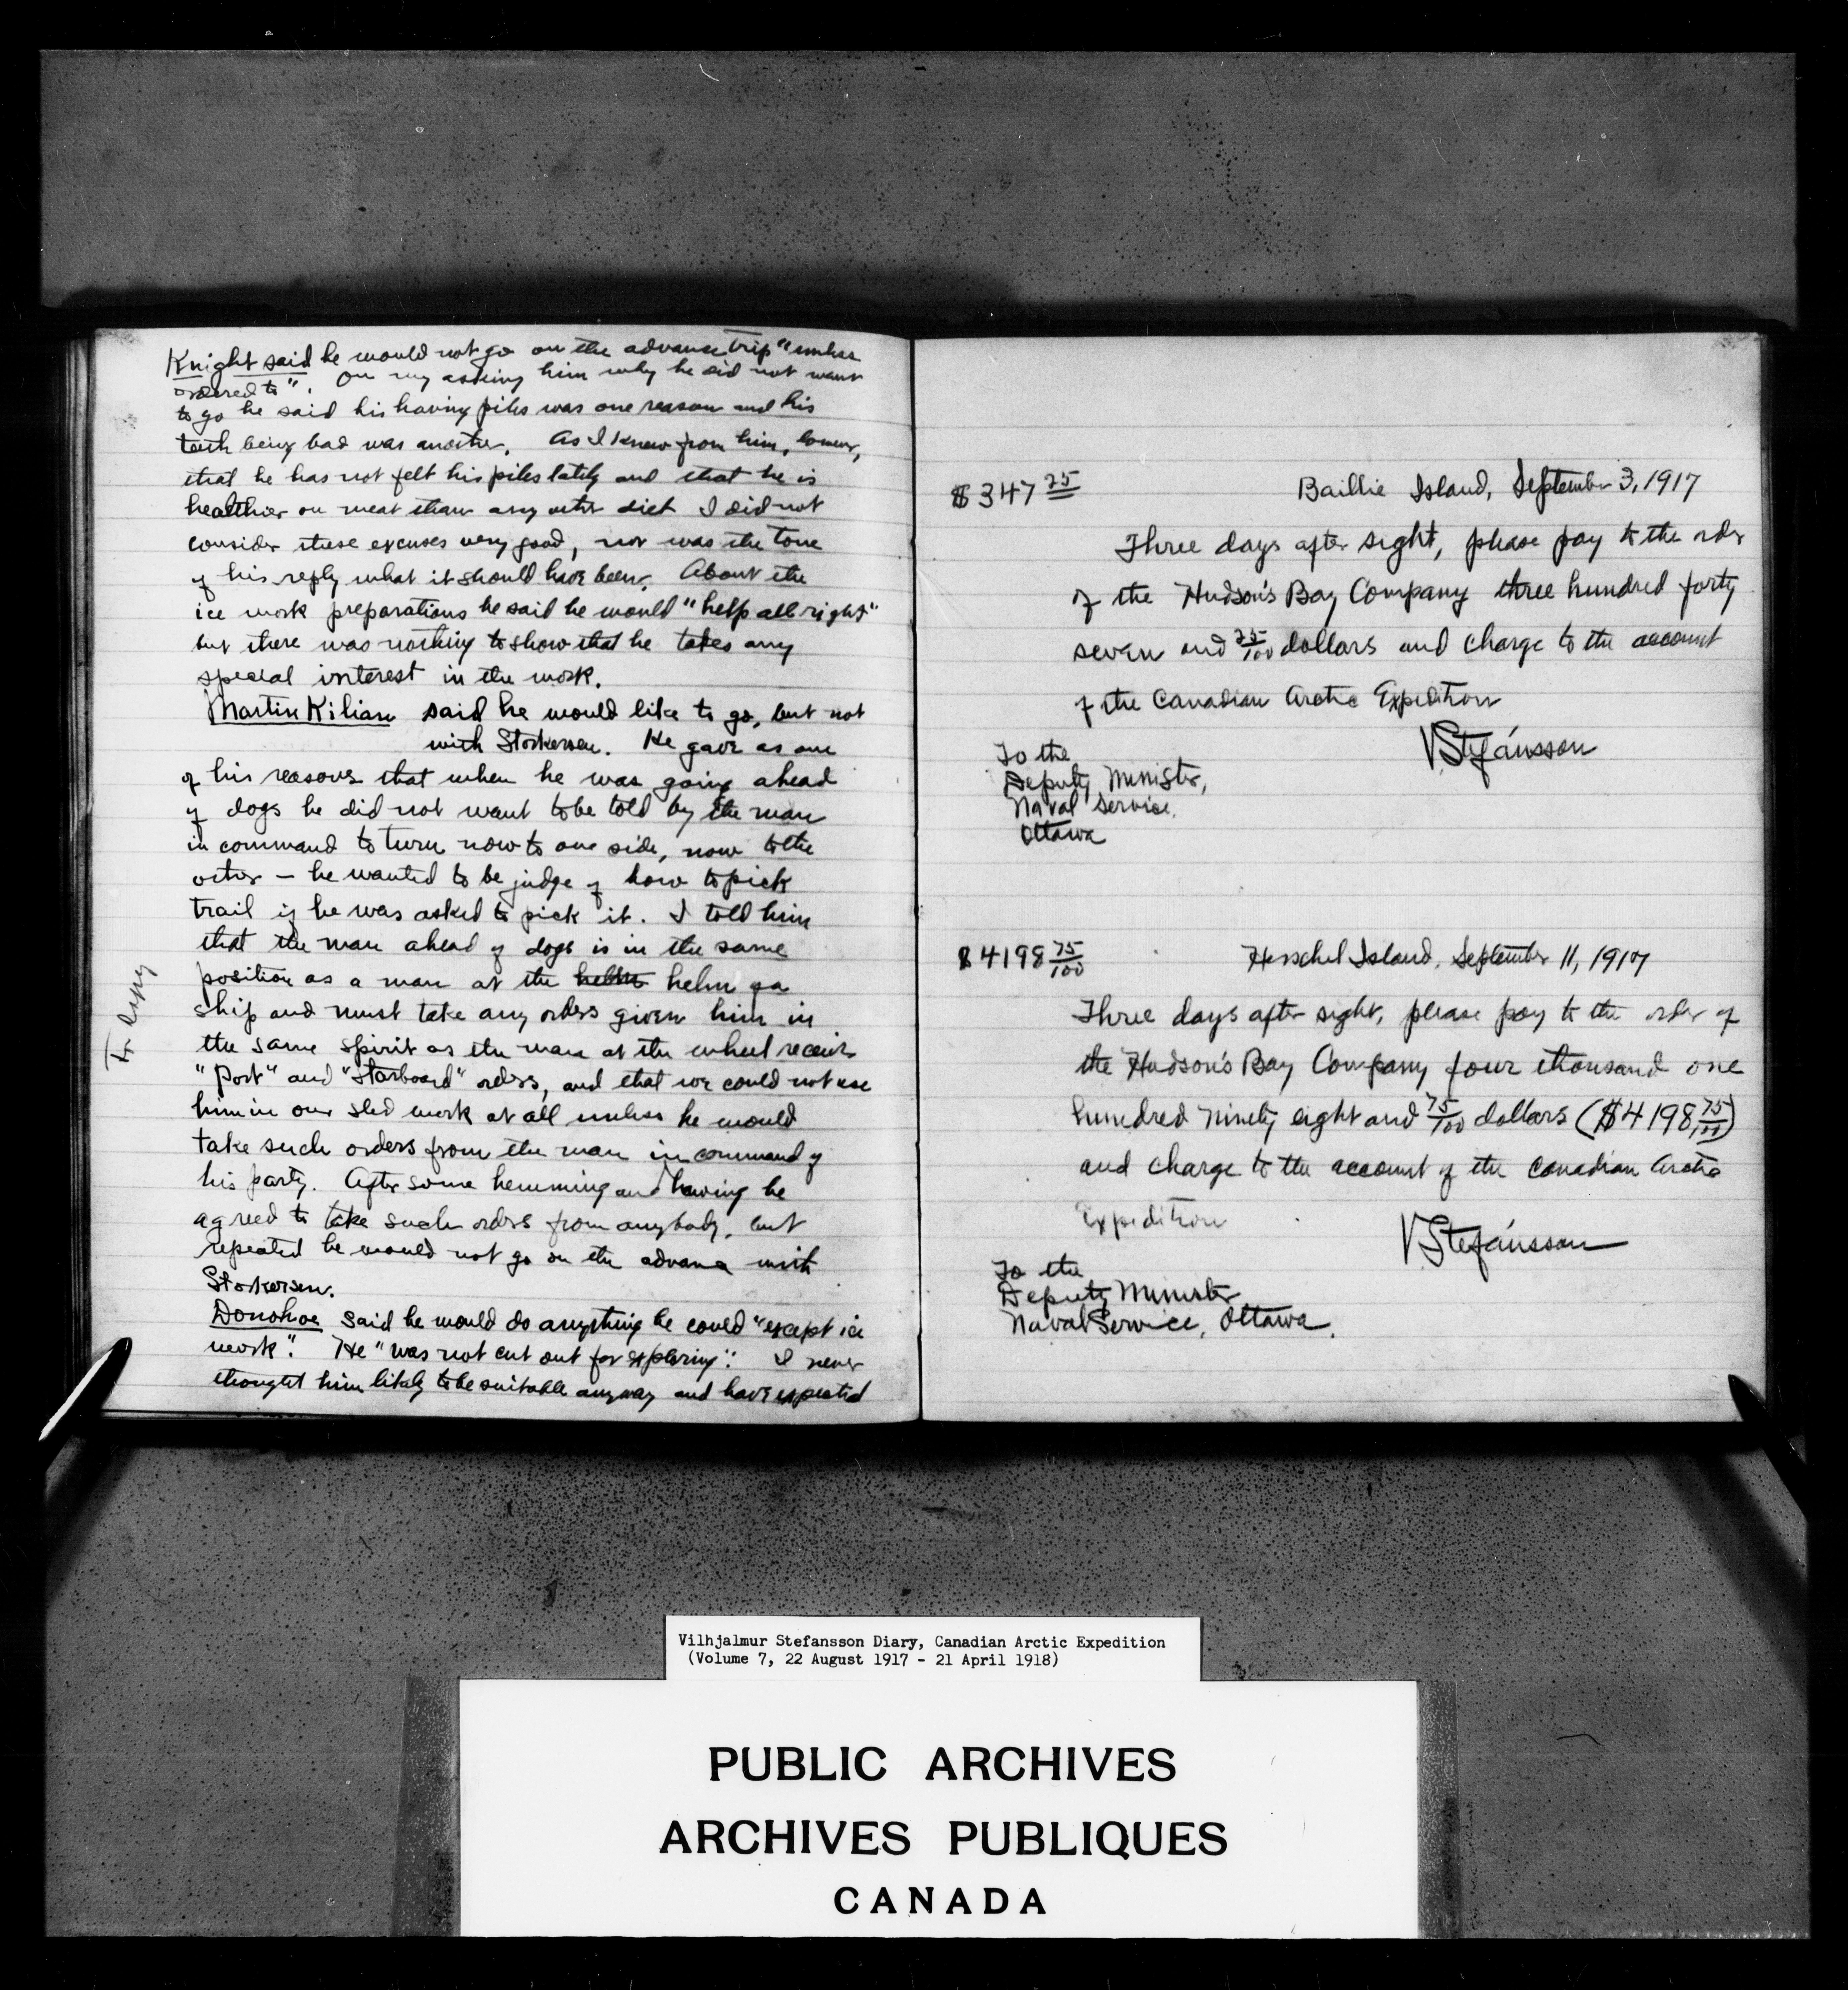 Knight said he would not go on the advance trip "unless
ordered to". On my asking him why he did not want
to go he said his having piles was one reason and his
teeth being bad was another. As I knew from him, however,
that he has not felt his piles lately and that he is
healthier on meat than any other diet I did not
consider these excuses very good, nor was the tone
of his reply what it should have been. About the
ice work preparations he said he would "help all right"
but there was nothing to show that he takes any
special interest in the work.
Martin Kilian said he would like to go, but not
with Storkersen. He gave as one
of his reasons that when he was going ahead
of dogs he did not want to be told by the man
in command to turn now to one side, now to the
other – he wanted to be judge of how to pick
trail if he was asked to pick it. I told him
that the man ahead of dogs is in the same
position as a man at the helm helm of a
ship and must take any orders given him in
the same spirit as the man at the wheel receives
"Port" and "Starboard" orders, and that we could not use
him in our sled work at all unless he would
take such orders from the man in command of
his party. After some hemming and hawing he
agreed to take such orders from anybody, but
repeated he would not go on the advance with
Storkersen.
Donohoe said he would do anything he could "except ice
work". He "was not cut out for exploring". I never
thought him likely to be suitable anyway and have expected
$347 25
Baillie Island, September 3, 1917
Three days after sight, please pay to the order
of the Hudson's Bay Company three hundred forty
seven and 25/100 dollars and charge to the account
of the Canadian Arctic Expedition
V Stefánsson
To the
Deputy Minister,
Naval Service,
Ottawa
$4198 75/100
Herschel Island, September 11, 1917
Three days after sight, please pay to the order of
the Hudson's Bay Company four thousand one
hundred ninety eight and 75/100 dollars ($4198 75/100)
and charge to the account of the Canadian Arctic
Expedition
V Stefánsson
To the
Deputy Minister
Naval Service, Ottawa.
Vilhjalmur Stefansson Diary, Canadian Arctic Expedition
(Volume 7, 22 August 1917 - 21 April 1918)
PUBLIC ARCHIVES
ARCHIVES PUBLIQUES
CANADA